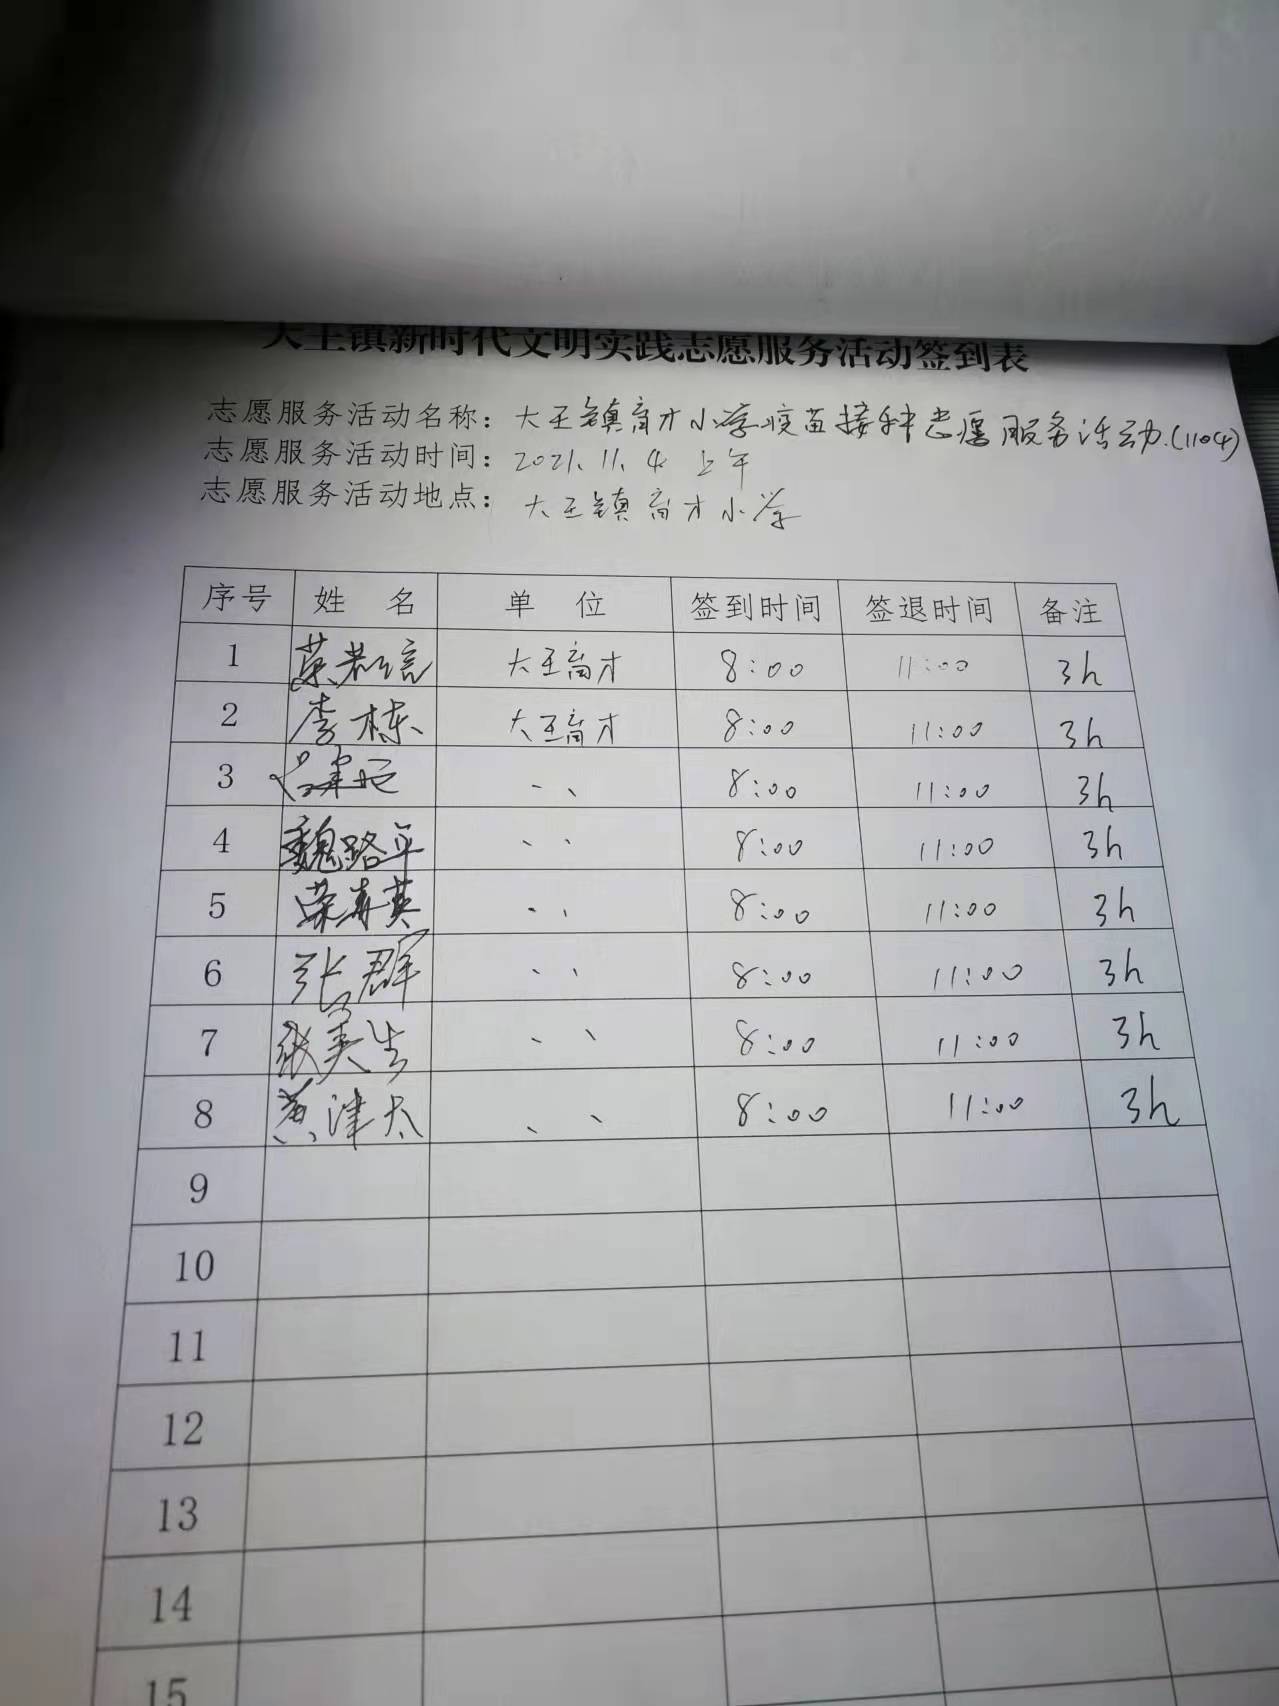 大王镇新时代文明实践志愿服务活动签到表
志愿服务活动名称：大王镇育才小学疫苗接种志愿服务活动.(1104)
志愿服务活动时间：2021.11.4 上午
志愿服务活动地点：大王镇育才小学
序号 姓 名 单 位 签到时间 签退时间 备注
1 大王育才 8:00 11:00 3h
2 李栋 大王育才 8:00 11:00 3h
3 、、 8:00 11:00 3h
4 魏路平 、、 8:00 11:00 3h
5 荣春英 、、 8:00 11:00 3h
6 张群 、、 8:00 11:00 3h
7 张美生 、、 8:00 11:00 3h
8 黄津太 、、 8:00 11:00 3h
9
10
11
12
13
14
15